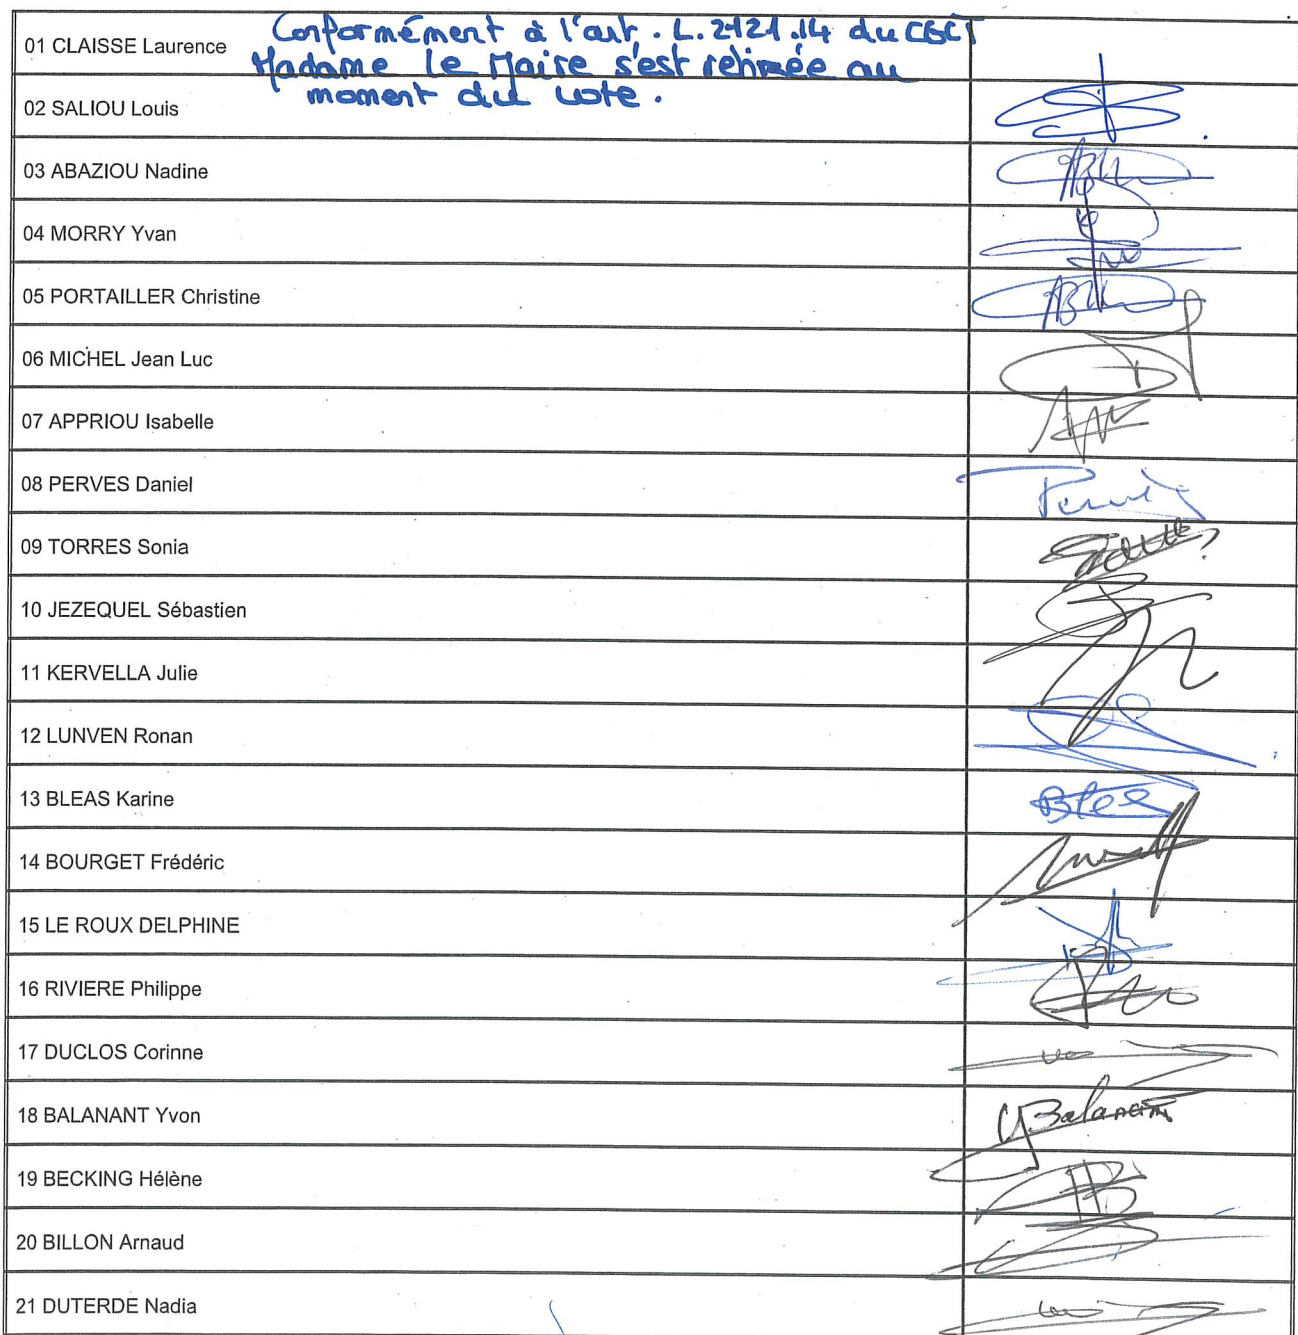 01 CLAISSE Laurence
Conformément à l'art. L.2121.14 du CGCT
Madame le Maire s'est retirée au
moment du vote.
02 SALIOU Louis
03 ABAZIOU Nadine
04 MORRY Yvan
05 PORTAILLER Christine
06 MICHEL Jean Luc
07 APPRIOU Isabelle
08 PERVES Daniel
09 TORRES Sonia
10 JEZEQUEL Sébastien
11 KERVELLA Julie
12 LUNVEN Ronan
13 BLEAS Karine
14 BOURGET Frédéric
15 LE ROUX DELPHINE
16 RIVIERE Philippe
17 DUCLOS Corinne
18 BALANANT Yvon
19 BECKING Hélène
20 BILLON Arnaud
21 DUTERDE Nadia